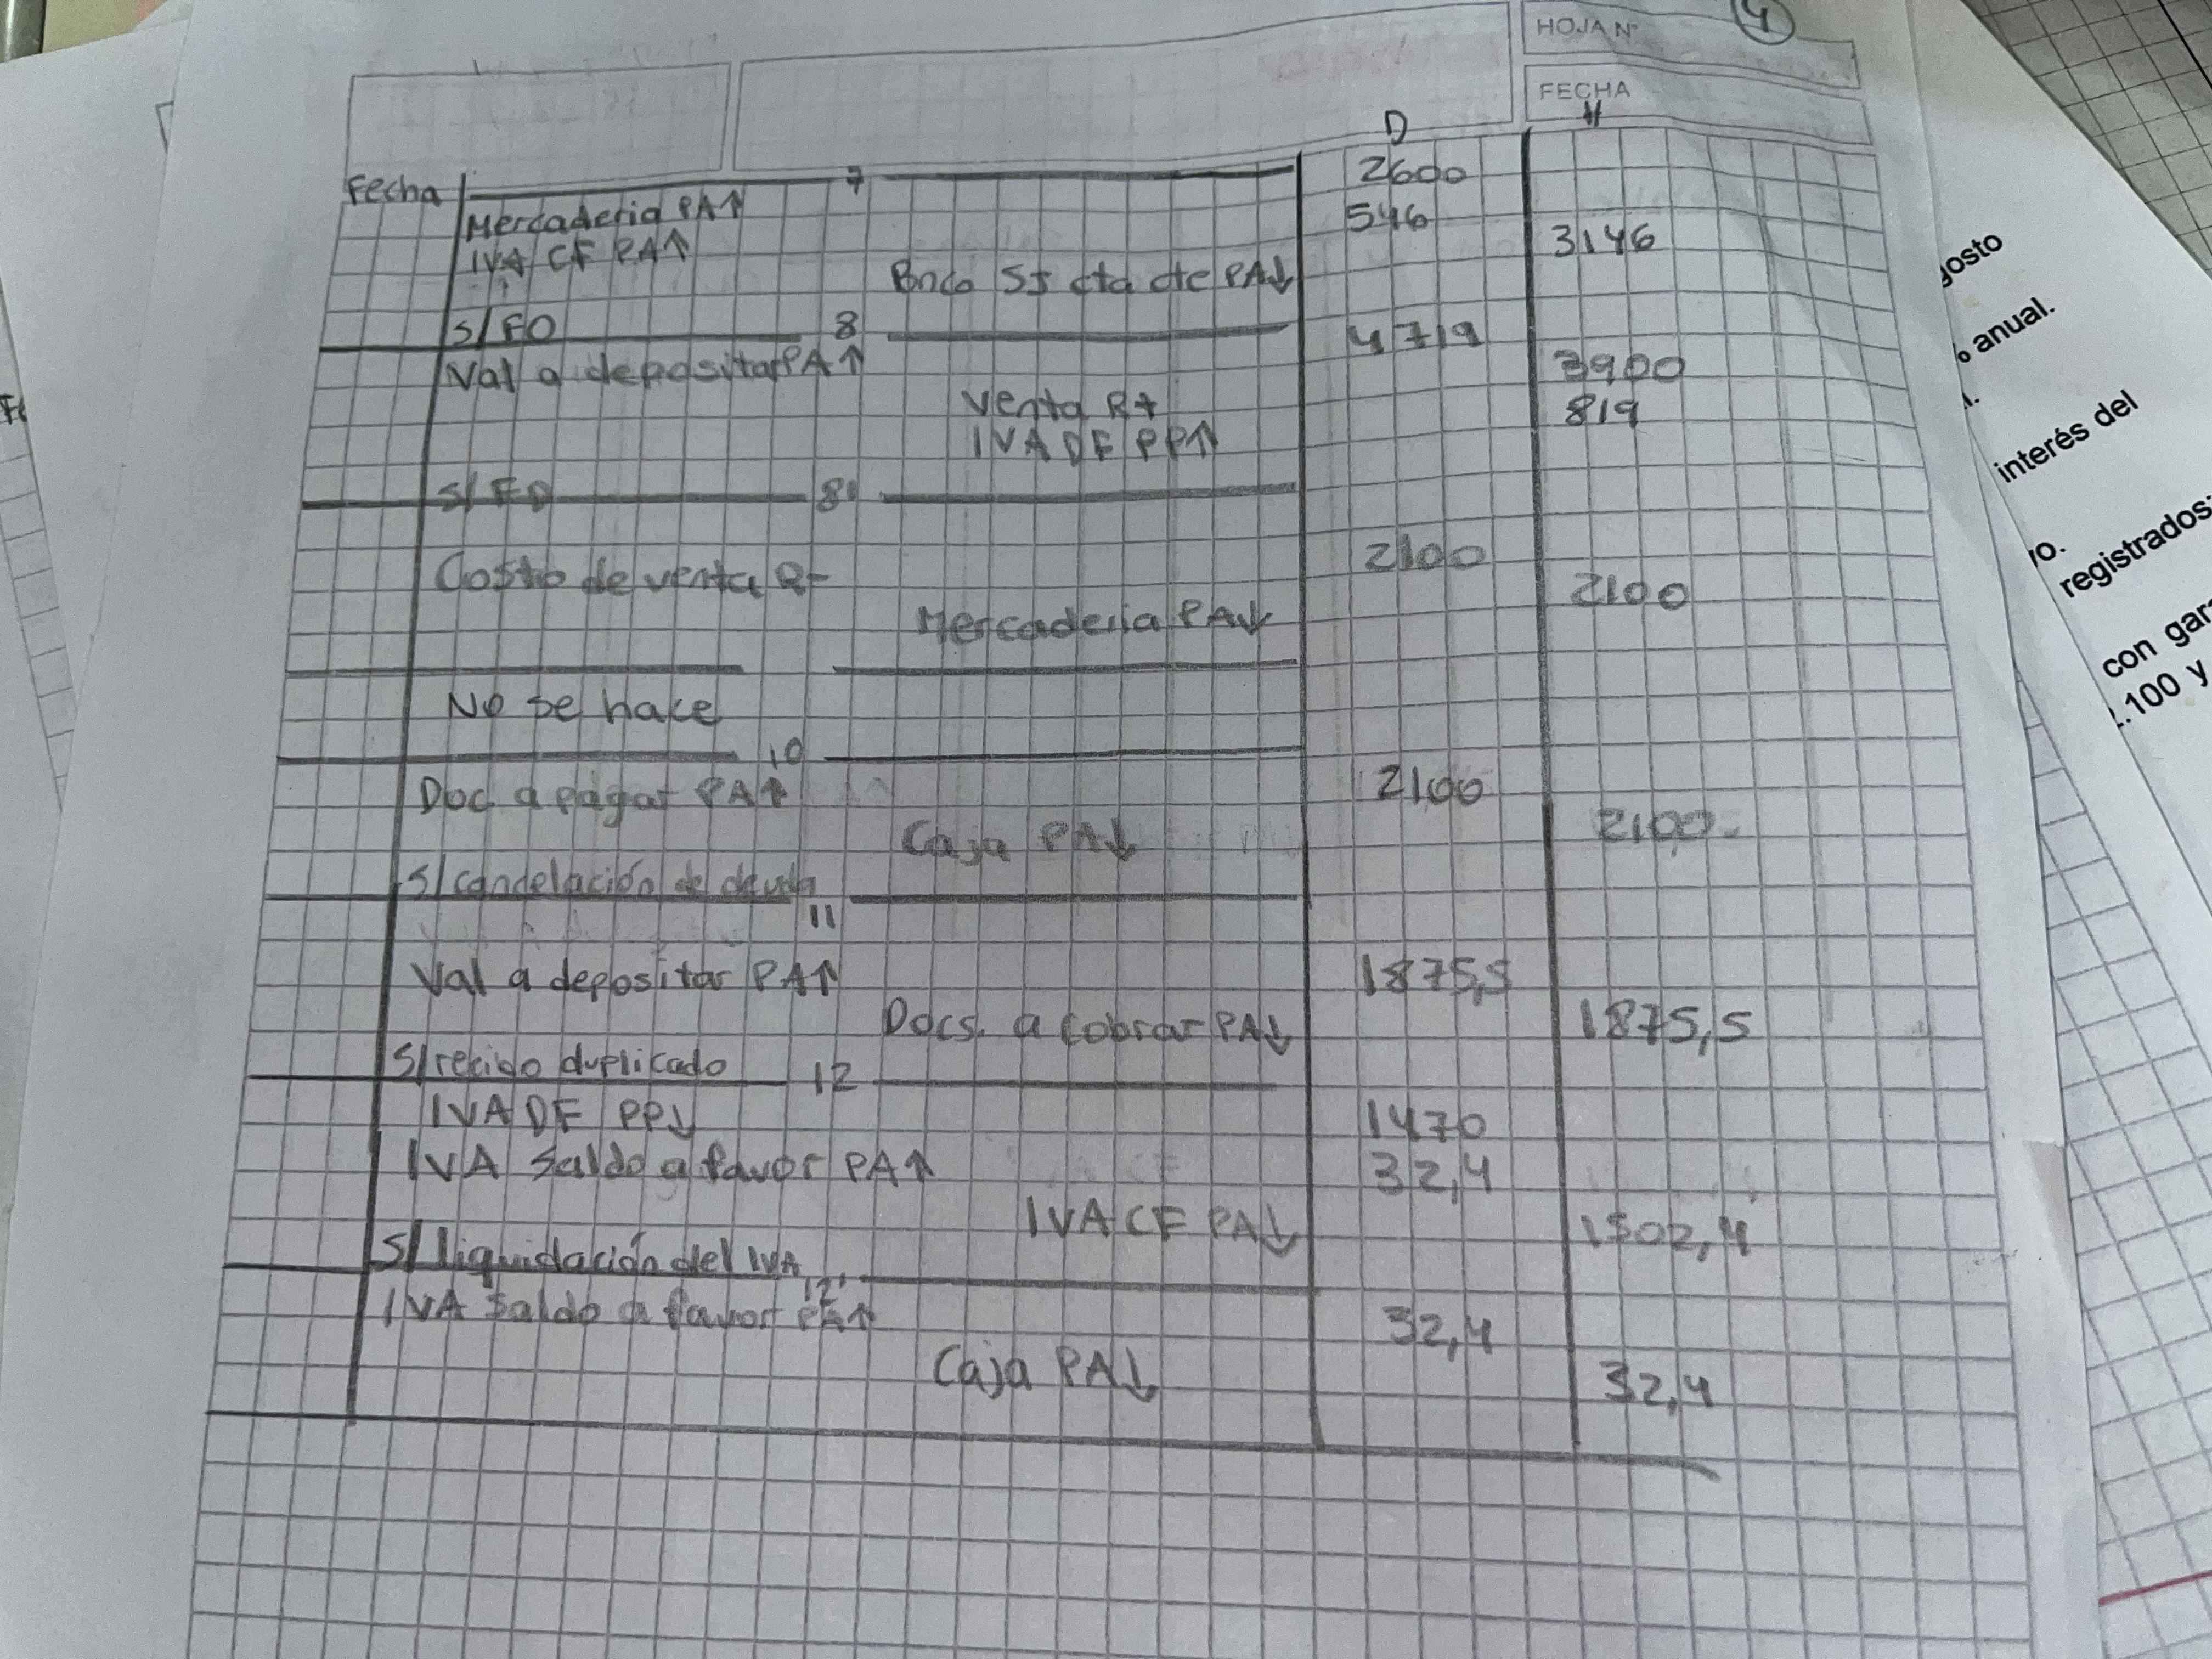 HOJA N° 4
FECHA
D H
Fecha 7 2600
Mercaderia PA↑ 546
IVA CF PA↑ 3146
Bnco SJ cta cte PA↓
S/FO 8 4719
Val a depositar PA↑ 3900
Venta R+ 819
IVA DF PP↑
S/FD 8'
Costo de venta R- 2100
Mercaderia PA↓ 2100
No se hace
10
Doc a pagar PA↑ 2100
Caja PA↓ 2100
S/cancelación de deuda
11
Val a depositar PA↑ 1875,5
Docs. a cobrar PA↓ 1875,5
S/recibo duplicado 12
IVA DF PP↓ 1470
IVA Saldo a favor PA↑ 32,4
IVA CF PA↓ 1502,4
S/liquidación del IVA 12'
IVA Saldo a favor PA↑ 32,4
Caja PA↓ 32,4
gosto
% anual.
interés del
registrados
con gar
2.100 y